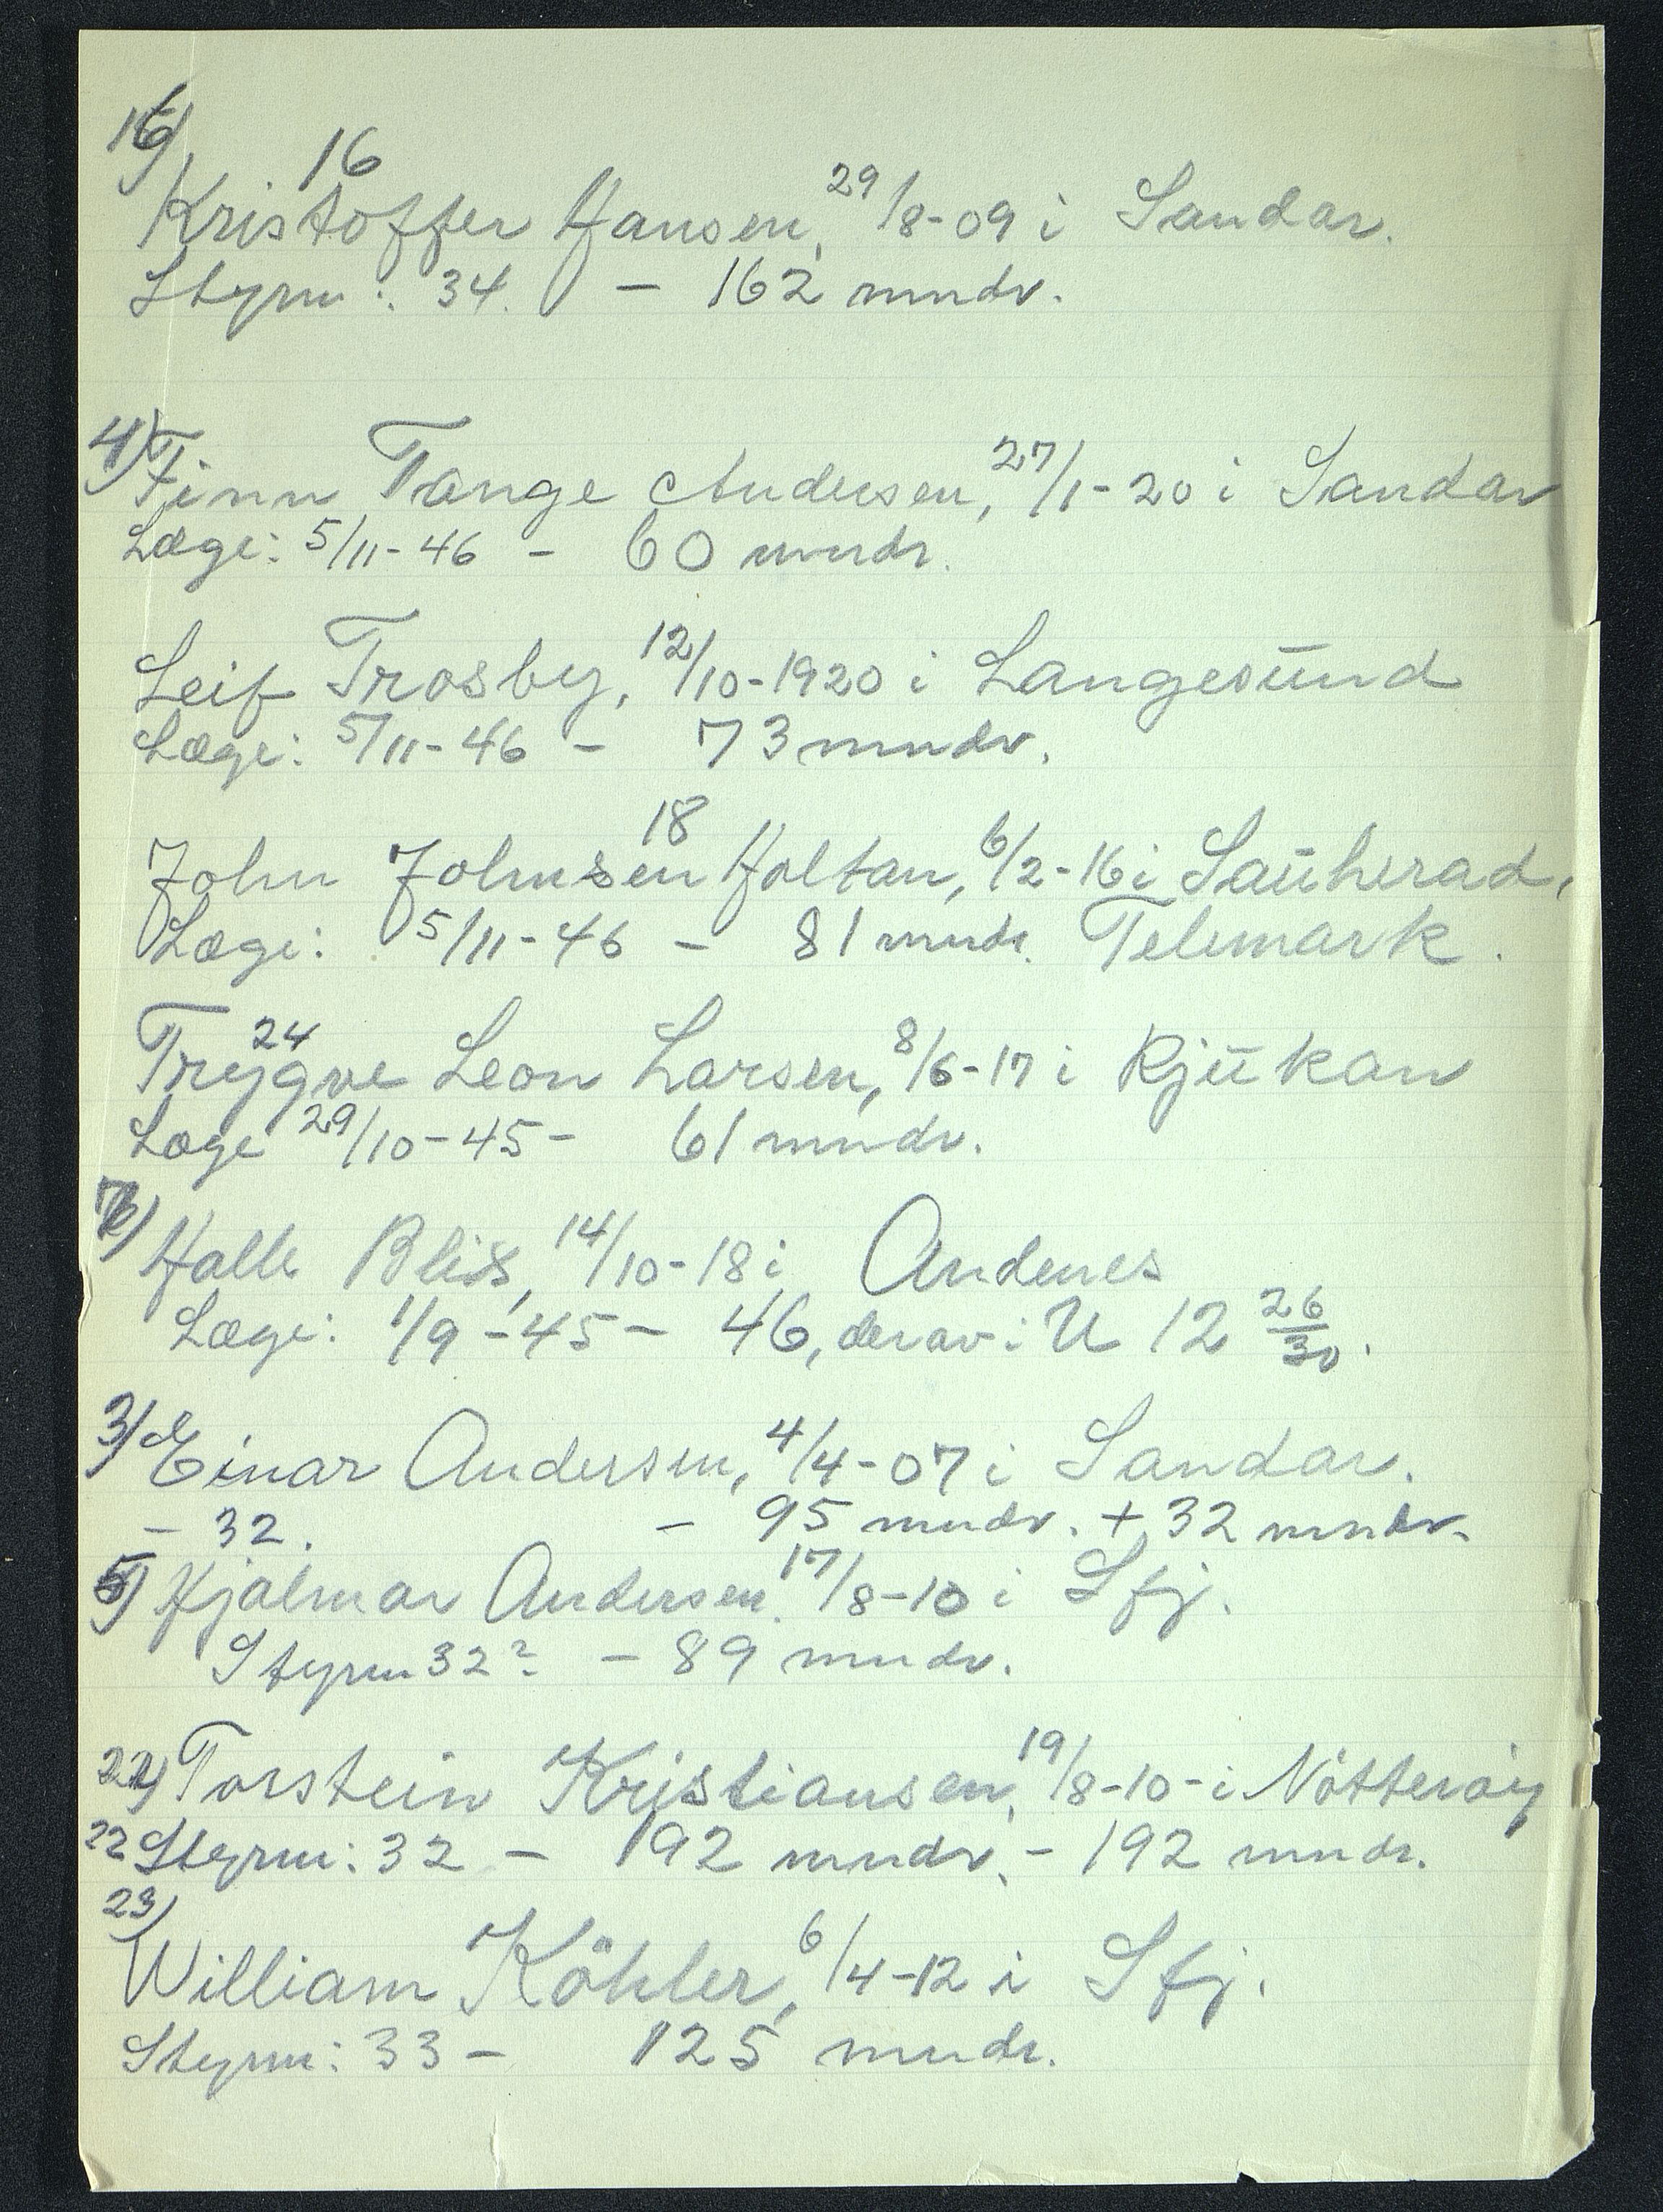 16)
16
Kristoffer Hansen, 29/8-09 i Sandar.
Styrm: 34. - 162 mndr.
4) Finn Tange Andersen, 27/1-20 i Sandar
Læge: 5/11-46 - 60 mndr.
Leif Trosby, 12/10-1920 i Langesund
Læge: 5/11-46 - 73 mndr.
18
John Johnsen Holtan, 6/2-16 i Sauherad,
Læge: 5/11-46 - 81 mndr. Telemark.
24
Trygve Leon Larsen, 8/6-17 i Rjukan
Læge 29/10-45- 61 mndr.
Halle Blix, 14/10-18 i Andenes
Læge: 1/9-45- 46, derav i U 12 26/30.
3) Einar Andersen, 4/4-07 i Sandar.
- 32. - 95 mndr. + 32 mndr.
5) Hjalmar Andersen. 17/8-10 i Sfj.
Styrm 32? - 89 mndr.
22) Torstein Kristiansen, 19/8-10 - i Nötteröy
22 Styrm: 32 - 192 mndr. - 192 mndr.
23)
William Köhler, 6/4-12 i Sfj.
Styrm: 33 - 125 mndr.